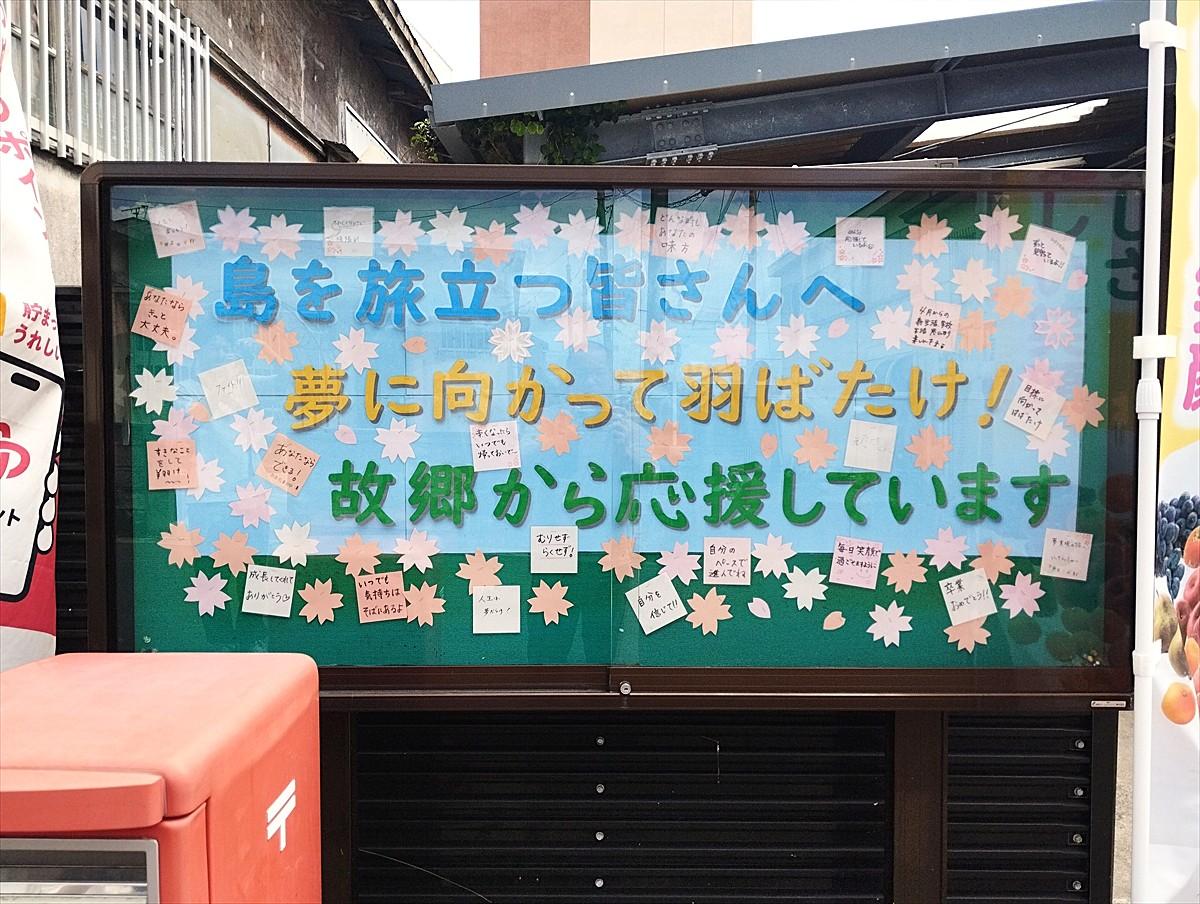 島を旅立つ皆さんへ
夢に向かって羽ばたけ!
故郷から応援しています
どんな時も
あなたの
味方
あなたなら
きっと
大丈夫。
ファイト!!
すきなこと
をして
羽ばけ
〜!
あなたなら
できる!
辛くなったら
いつでも
帰っておいでー
4月からの
新生活、学校
目標に
向かって
はばたけ
むりせず
らくせず!
自分の
ペースで
進んでね
毎日笑顔で
過ごせますように
成長してくれて
ありがとう♡
いつでも
気持ちは
そばにあるよ
人生は
夢だらけ!
自分を
信じて!!
卒業
おめでとう!!
貯まっ
うれしい
ント
〒